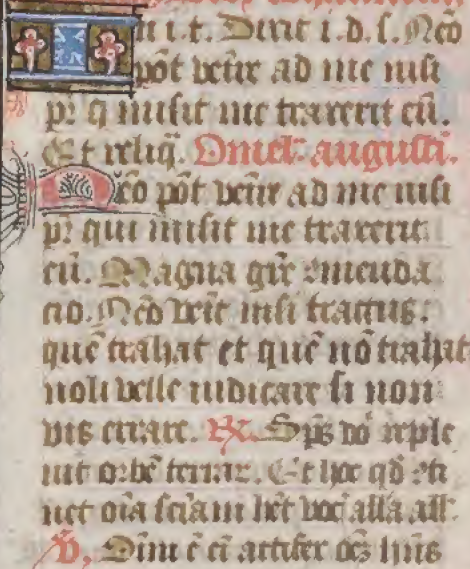 n i. t. Dixit i. d. s. Nēo
pōt venire ad me nisi
pr̄ q̄ misit me traxerit eū.
Et reliq̄. Omel. augusti.
Nēo pōt venire ad me nisi
pr̄ qui misit me traxerit
eū. Magna gr̄e
cio. Nēo venit nisi tractus.
quē trahat et quē nō trahat
noli velle iudicare si non
vis errare. R̄. Sp̄s dn̄i reple
uit orbē terrar. Et hoc qd̄ cōti
net oīa sciam het voc̄ alla all̄.
V̄. Oīm ē ei artifex oēs hn̄s